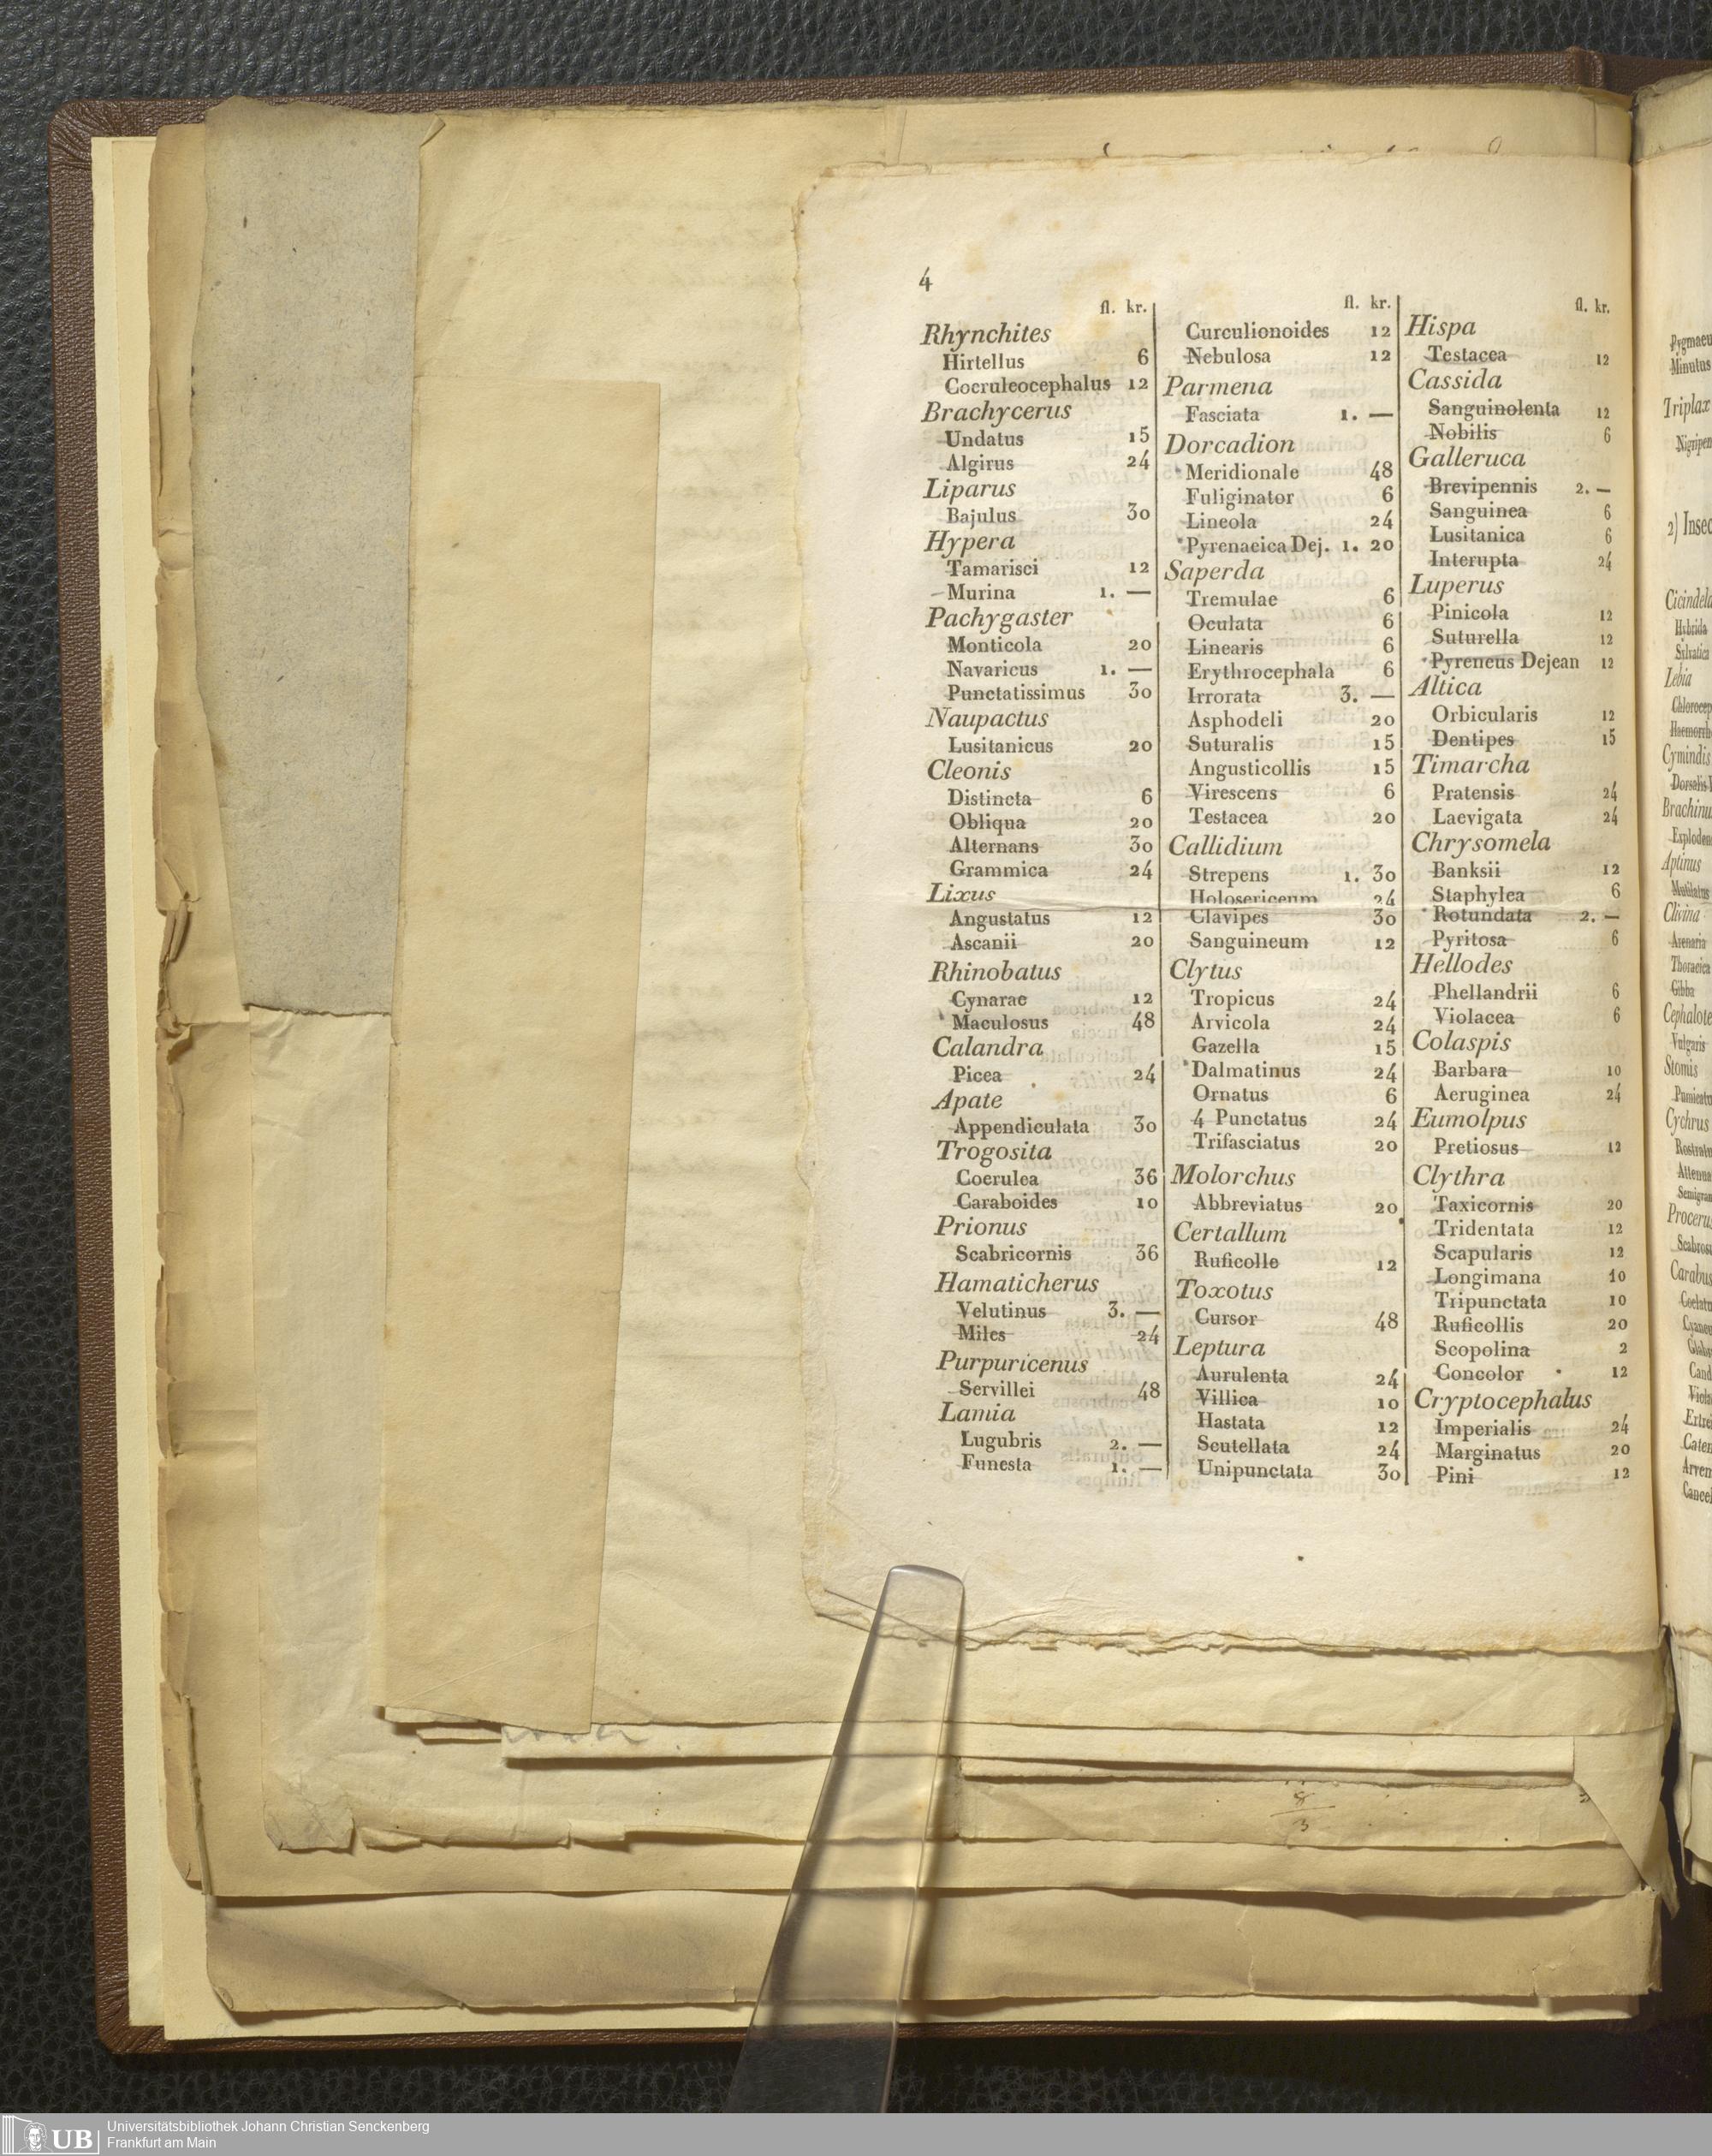 4
fl. kr.
Rhynchites
Hirtellus 6
Coeruleocephalus 12
Brachycerus
Undatus 15
Algirus 24
Liparus
Bajulus 30
Hypera
Tamarisci 12
Murina 1. —
Pachygaster
Monticola 20
Navaricus 1. —
Punctatissimus 30
Naupactus
Lusitanicus 20
Cleonis
Distincta 6
Obliqua 20
Alternans 30
Grammica 24
Lixus
Angustatus 12
Ascanii 20
Rhinobatus
Cynarae 12
Maculosus 48
Calandra
Picea 24
Apate
Appendiculata 30
Trogosita
Coerulea 36
Caraboides 10
Prionus
Scabricornis 36
Hamaticherus
Velutinus 3. —
Miles 24
Purpuricenus
Servillei 48
Lamia
Lugubris 2. —
Funesta 1. —
fl. kr.
Curculionoides 12
Nebulosa 12
Parmena
Fasciata 1. —
Dorcadion
Meridionale 48
Fuliginator 6
Lineola 24
Pyrenaeica Dej. 1. 20
Saperda
Tremulae 6
Oculata 6
Linearis 6
Erythrocephala 6
Irrorata 3. —
Asphodeli 20
Suturalis 15
Angusticollis 15
Virescens 6
Testacea 20
Callidium
Strepens 1. 30
Holosericeum 24
Clavipes 30
Sanguineum 12
Clytus
Tropicus 24
Arvicola 24
Gazella 15
Dalmatinus 24
Ornatus 6
4 Punctatus 24
Trifasciatus 20
Molorchus
Abbreviatus 20
Certallum
Ruficolle 12
Toxotus
Cursor 48
Leptura
Aurulenta 24
Villica 10
Hastata 12
Scutellata 24
Unipunctata 30
fl. kr.
Hispa
Testacea 12
Cassida
Sanguinolenta 12
Nobilis 6
Galleruca
Brevipennis 2. —
Sanguinea 6
Lusitanica 6
Interupta 24
Luperus
Pinicola 12
Suturella 12
Pyreneus Dejean 12
Altica
Orbicularis 12
Dentipes 15
Timarcha
Pratensis 24
Laevigata 24
Chrysomela
Banksii 12
Staphylea 6
Rotundata 2. —
Pyritosa 6
Hellodes
Phellandrii 6
Violacea 6
Colaspis
Barbara 10
Aeruginea 24
Eumolpus
Pretiosus 12
Clythra
Taxicornis 20
Tridentata 12
Scapularis 12
Longimana 10
Tripunctata 10
Ruficollis 20
Scopolina 2
Concolor 12
Cryptocephalus
Imperialis 24
Marginatus 20
Pini 12
Minutus
Triplax
2) Insec
Hybrida
Silvatica
Lebia
Cymindis
Aptinus
Mutilatus
Clivina
Arenaria
Thoracica
Gibba
Vulgaris
Stomis
Cychrus
8
3
UB
Universitätsbibliothek Johann Christian Senckenberg
Frankfurt am Main